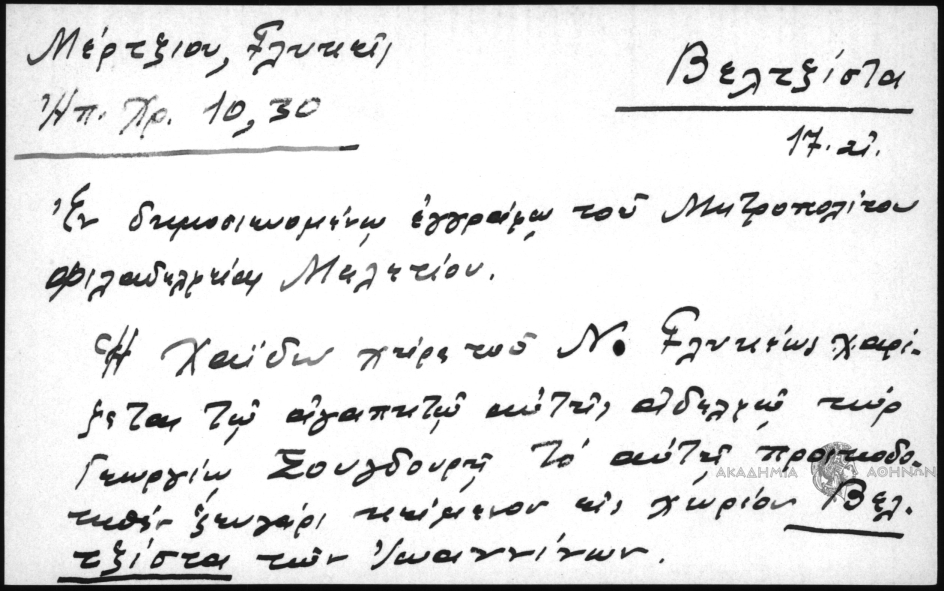 Μέρτζιου, Γλυκεῖς
Ἠπ. Χρ. 10, 30
Βελτζίστα
17. αἰ.
Ἐν δημοσιευομένῳ ἐγγράφῳ τοῦ Μητροπολίτου
Φιλαδελφείας Μελετίου.
Ἡ Χαϊδω χήρα τοῦ Ν. Γλυκέως χαρί-
ζεται τῷ ἀγαπητῷ αὐτῆς ἀδελφῷ κύρ
Γεωργίῳ Σουγδουρῇ τό αὐτῇ προικοδο-
τηθέν ζευγάρι κείμενον εἰς χωρίον Βελ-
τζίστα τῶν Ἰωαννίνων.
ΑΚΑΔΗΜΙΑ ΑΘΗΝΩΝ